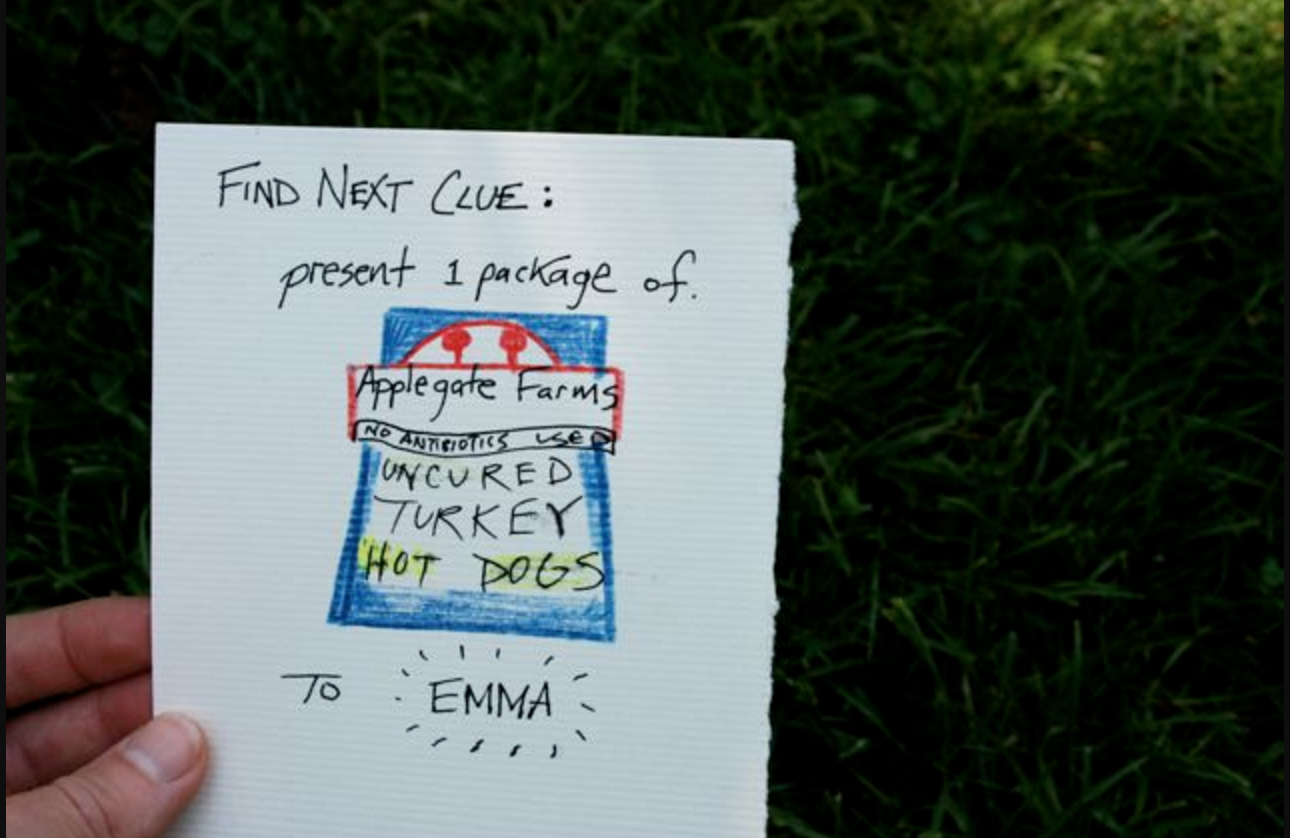 FIND NEXT CLUE:
present 1 package of.
Applegate Farms
NO ANTIBIOTICS USED
UNCURED
TURKEY
HOT DOGS
TO EMMA